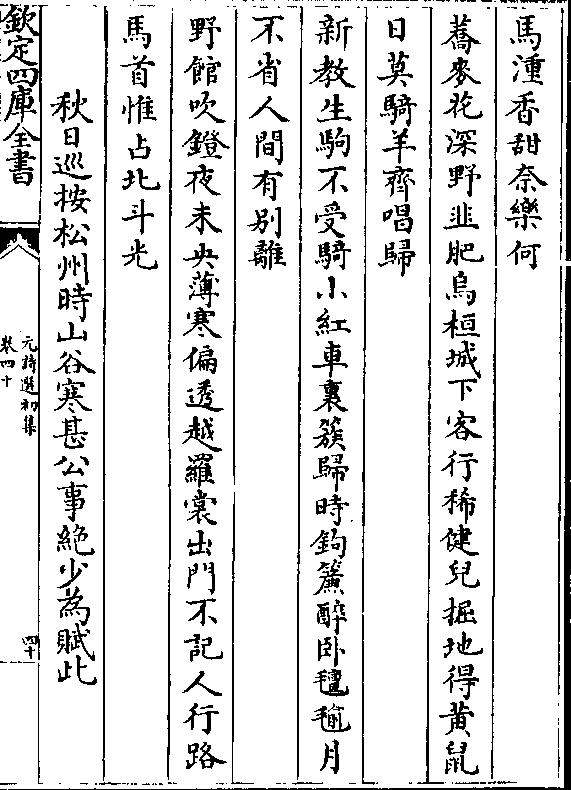 馬湩香甜奈樂何
蕎麥花深野韭肥烏桓城下客行稀健兒掘地得黄鼠
日莫騎羊齊唱歸
新教生駒不受騎小紅車裏簇歸時鉤簾醉卧氊毺月
不省人間有別離
野館吹鐙夜未央薄寒偏透越羅裳出門不記人行路
馬首惟占北斗光
秋日巡按松州時山谷寒甚公事絶少為賦此
欽定四庫全書
元詩選初集
卷四十
四十